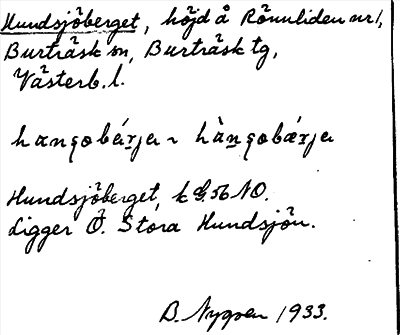 Hundsjöberget, höjd å Rönnliden nr 1,
Burträsk sn, Burträsk tg,
Västerb. l.
Hundsjöberget, k G. 56 NO.
Ligger Ö. Stora Hundsjön.
B. Nygren 1933.